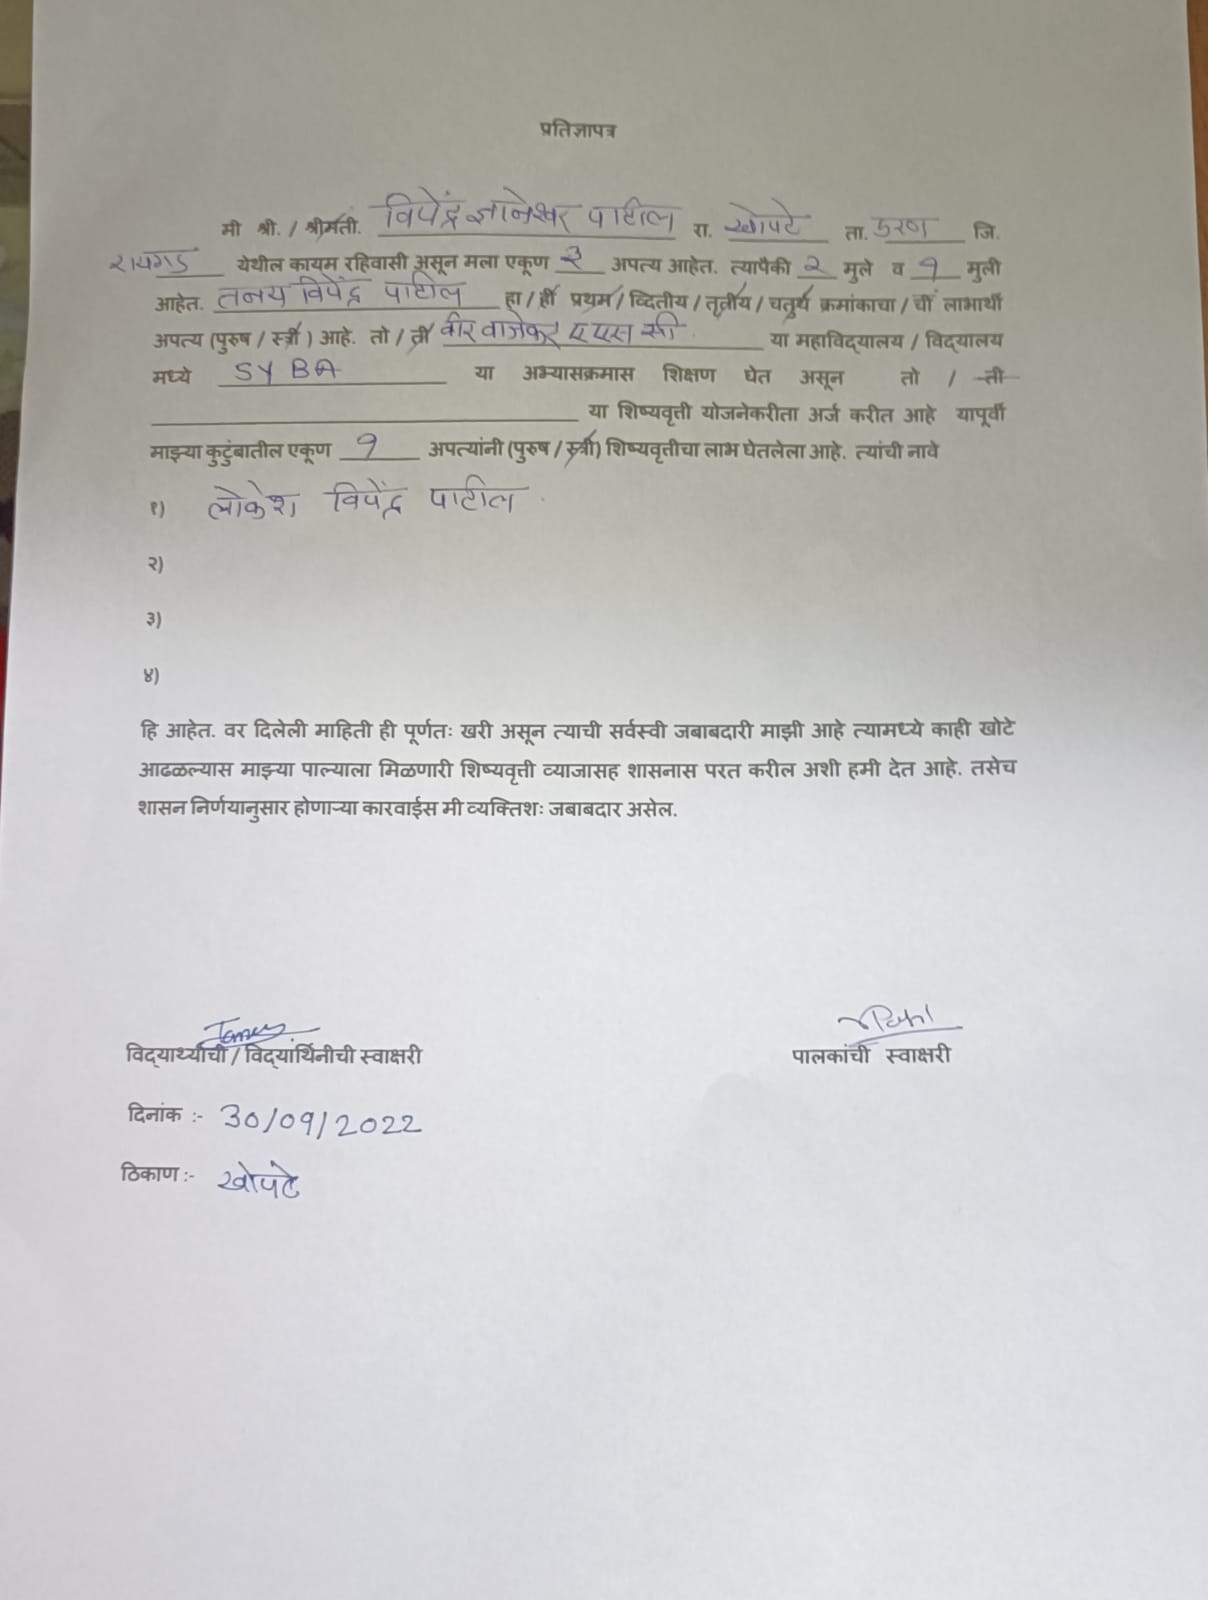 प्रतिज्ञापत्र
मी श्री. / श्रीमती. विपेंद्र ज्ञानेश्वर पाटील रा. खोपटे ता. उरण जि.
रायगड येथील कायम रहिवासी असून मला एकूण ३ अपत्य आहेत. त्यापैकी २ मुले व १ मुली
आहेत. तनय विपेंद्र पाटील हा / ही प्रथम / व्दितीय / तृतीय / चतुर्थ क्रमांकाचा / ची लाभार्थी
अपत्य (पुरुष / स्त्री ) आहे. तो / ती वीर वाजेकर ए एस सी. या महाविद्यालय / विद्यालय
मध्ये SYBA या अभ्यासक्रमास शिक्षण घेत असून तो / ती
या शिष्यवृत्ती योजनेकरीता अर्ज करीत आहे यापूर्वी
माझ्या कुटुंबातील एकूण १ अपत्यांनी (पुरुष / स्त्री) शिष्यवृत्तीचा लाभ घेतलेला आहे. त्यांची नावे
१) लोकेश विपेंद्र पाटील .
२)
३)
४)
हि आहेत. वर दिलेली माहिती ही पूर्णतः खरी असून त्याची सर्वस्वी जबाबदारी माझी आहे त्यामध्ये काही खोटे
आढळल्यास माझ्या पाल्याला मिळणारी शिष्यवृत्ती व्याजासह शासनास परत करील अशी हमी देत आहे. तसेच
शासन निर्णयानुसार होणाऱ्या कारवाईस मी व्यक्तिशः जबाबदार असेल.
विद्यार्थ्याची / विद्यार्थिनीची स्वाक्षरी पालकांची स्वाक्षरी
दिनांक :- 30/09/2022
ठिकाण :- खोपटे